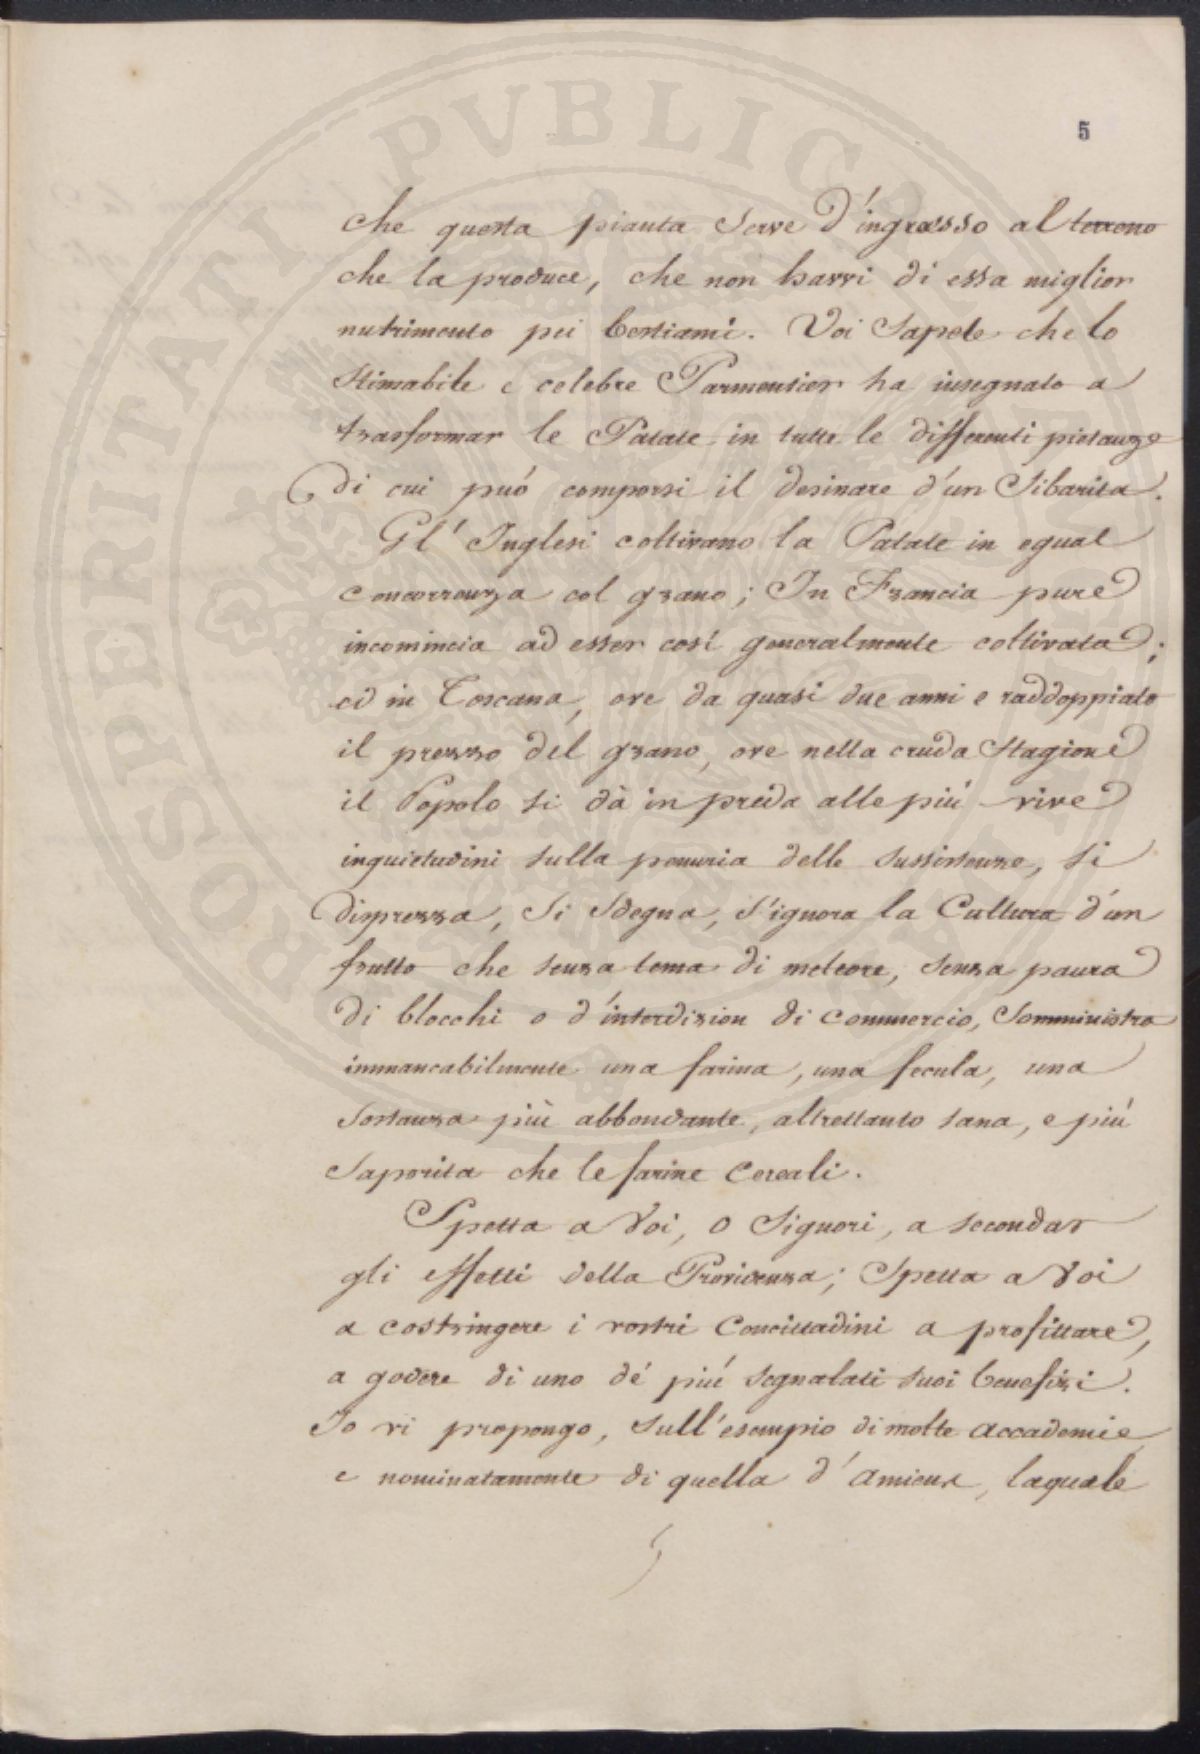 5
che questa pianta serve d'ingrasso al terreno
che la produce, che non havvi di essa miglior
nutrimento pei bestiami. Voi Sapete che lo
Stimabile e celebre Parmentier ha insegnato a
trasformar le Patate in tutte le differenti pietanze
di cui può comporsi il desinare d'un Sibarita.
Gl'Inglesi coltivano la Patate in egual
concorrenza col grano; In Francia pure
incomincia ad esser così generalmente coltivata;
ed in Toscana, ove da quasi due anni e raddoppiato
il prezzo del grano, ove nella cruda Stagione
il Popolo si dà in preda alle più vive
inquietudini sulla penuria delle sussistenze, si
disprezza, Si Sdegna, S'ignora la Cultura d'un
frutto che senza tema di meteore, senza paura
di blocchi o d'interdizion di commercio, Somministra
immancabilmente una farina, una fecula, una
Sostanza più abbondante, altrettanto sana, e più
Saporita che le farine Cereali.
Spetta a Voi, o Signori, a secondar
gli effetti della Providenza; Spetta a Voi
a costringere i vostri Concittadini a profittare,
a godere di uno dé più segnalati suoi benefizi.
Io vi propongo, Sull'esempio di molte accademie
e nominatamente di quella d'Amiens, laquale
PROSPERITATI PVBLICAE